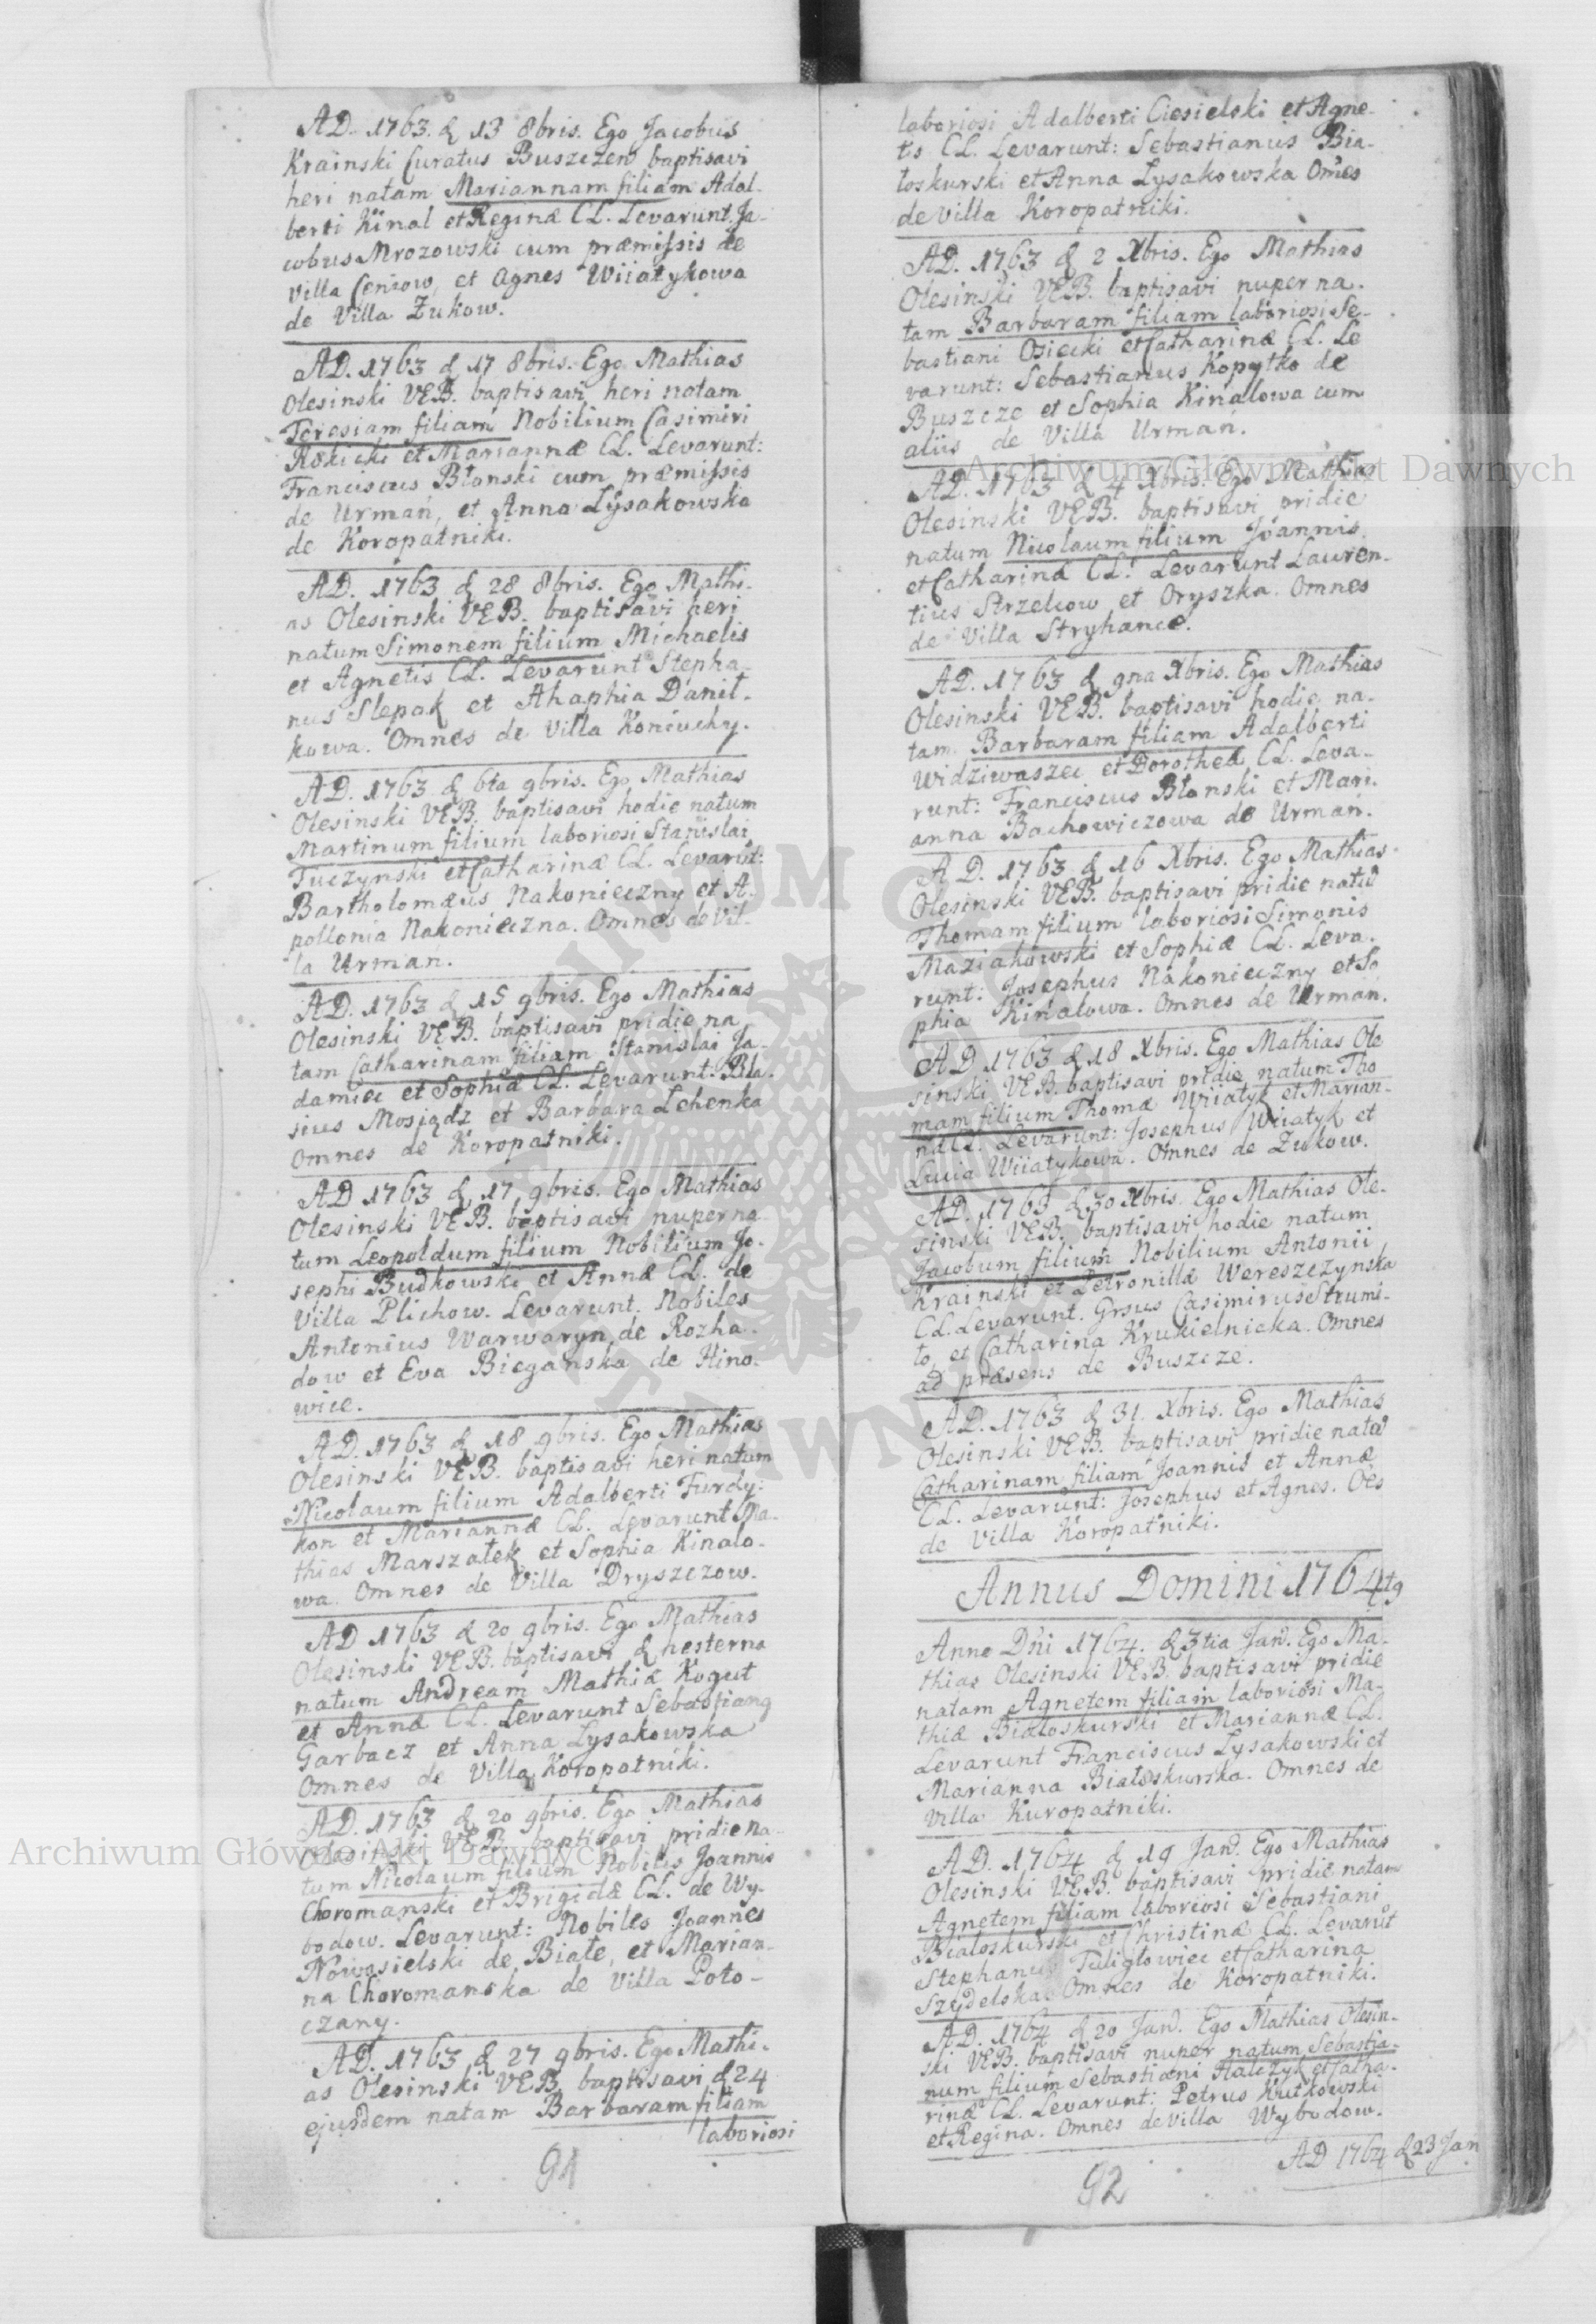 AD. 1763. d. 13 8bris. Ego Jacobus
Krainski Curatus Buszczen baptisavi
heri natam Mariannam filiam Adal-
berti Kinal et Reginæ CL. Levarunt. Ja-
cobus Mrozowski cum præmissis de
Villa Ceniow, et Agnes Wiiatykowa
de Villa Zukow.
AD. 1763 d 17 8bris. Ego Mathias
Olesinski VEB. baptisavi heri natam
Teresiam filiam Nobilium Casimiri
Rokicki et Mariannæ CL. Levarunt:
Franciscus Błonski cum præmissis
de Urmań, et Anna Lysakowska
de Koropatniki.
AD. 1763 d 28 8bris. Ego Mathi-
as Olesinski VEB. baptisavi heri
natum Simonem filium Michaelis
et Agnetis CL. Levarunt Stepha-
nus Slepak et Ahaphia Danił-
kowa. Omnes de Villa Koniuchy.
AD. 1763 d 6ta 9bris. Ego Mathias
Olesinski VEB. baptisavi hodie natum
Martinum filium laboriosi Stanislai
Tuczynski et Catharinæ CL. Levarūt:
Bartholomæus Nakonieczny et A-
pollonia Nakonieczna. Omnes de Vil-
la Urmań.
AD. 1763 d 15 9bris. Ego Mathias
Olesinski VEB. baptisavi pridie na
tam Catharinam filiam Stanislai Ja-
damiec et Sophiæ CL. Levarunt. Bla-
sius Mosiądz et Barbara Lehenka
Omnes de Koropatniki.
AD 1763 d 17 9bris. Ego Mathias
Olesinski VEB. baptisavi nuper na
tum Leopoldum filium Nobilium Jo-
sephi Budkowski et Annæ CL. de
Villa Plichow. Levarunt. Nobiles
Antonius Warwaryn, de Rozha-
dow et Eva Bieganska de Hino-
wice.
AD. 1763 d 18 9bris. Ego Mathias
Olesinski VEB. baptisavi heri natum
Nicolaum filium Adalberti Furdy-
kon et Mariannæ CL. Levarunt Ma-
thias Marszałek et Sophia Kinalo-
wa. Omnes de Villa Dryszczow.
AD 1763 d 20 9bris. Ego Mathias
Olesinski VEB. baptisavi d hesterna
natum Andream Mathiæ Kogut
et Annæ CL. Levarunt Sebastiang
Garbacz et Anna Lysakowska
Omnes de Villa Koropatniki.
AD. 1763 d 20 9bris. Ego Mathias
Olesinski VEB. baptisavi pridie na-
tum Nicolaum filium Nobilis Joannis
Choromanski et Brigidæ CL. de Wy-
bodow. Levarunt: Nobiles Joannes
Nowosielski de Białe, et Marian-
na Choromanska de Villa Poto-
czany.
AD. 1763 d 27 9bris. Ego Mathi-
as Olesinski VEB. baptisavi d 24
ejusdem natam Barbaram filiam
laboriosi
91
laboriosi Adalberti Ciesielski et Agne-
tis CL. Levarunt: Sebastianus Bia-
łoskurski et Anna Lysakowska Omēs
de Villa Koropatniki.
AD. 1763 d 2 Xbris. Ego Mathias
Olesinski VEB. baptisavi nuper na-
tam Barbaram filiam laboriosi Se-
bastiani Osiecki et Catharinæ CL. Le
varunt: Sebastianus Kopytko de
Buszcze et Sophia Kinalowa cum
aliis de Villa Urmań.
AD. 1763 d 4 Xbris. Ego Mathias
Olesinski VEB. baptisavi pridie
natum Nicolaum filium Joannis
et Catharinæ CL. Levarunt Lauren-
tius Strzelcow et Oryszka. Omnes
de Villa Stryhance.
AD. 1763 d 9na Xbris. Ego Mathias
Olesinski VEB. baptisavi hodie na-
tam Barbaram filiam Adalberti
Widziwaszec et Dorotheæ CL. Leva-
runt: Franciscus Błonski et Mari-
anna Bachowiczowa de Urmań.
A D. 1763 d 16 Xbris. Ego Mathias
Olesinski VEB. baptisavi pridie natū
Thomam filium laboriosi Simonis
Maziakowski et Sophiæ CL. Leva-
runt: Josephus Nakonieczny et So
phia Kinalowa. Omnes de Urman.
AD 1763 d 18 Xbris. Ego Mathias Ole
sinski VEB. baptisavi pridie natum Tho
mam filium Thomæ Wiiatyk et Marian-
næ CL. Levarunt: Josephus Wiiatyk et
Lucia Wiiatykowa. Omnes de Zukow.
AD. 1763 d 30 Xbris. Ego Mathias Ole-
sinski VEB. baptisavi hodie natum
Jacobum filium Nobilium Antonii
Krainski et Petronillæ Wereszczynska
CL. Levarunt. Grsus Casimirus Strumi-
to, et Catharina Krukielnicka. Omnes
ad præsens de Buszcze.
AD. 1763 d 31. Xbris. Ego Mathias
Olesinski VEB. baptisavi pridie natā
Catharinam filiam Joannis et Annæ
CL. Levarunt: Josephus et Agnes. Oēs
de Villa Koropatniki.
Annus Domini 1764tg
Anno Dñi 1764. d 3tia Jan. Ego Ma-
thias Olesinski VEB. baptisavi pridie
natam Agnetem filiam laboriosi Ma-
thiæ Białoskurski et Mariannæ CL.
Levarunt Franciscus Lysakowski et
Marianna Białoskurska. Omnes de
Villa Kuropatniki.
AD. 1764 d 19 Jan. Ego Mathias
Olesinski VEB. baptisavi pridie natam
Agnetem filiam laboriosi Sebastiani
Białoskurski et Christinæ CL. Levarūt
Stephanus Tuligłowiec et Catharina
Szydelska Omnes de Koropatniki.
AD. 1764 d 20 Jan. Ego Mathias Olesin-
ski VEB. baptisavi nuper natum Sebastia-
num filium Sebastiani Halczyk et Catha-
rinæ CL. Levarunt: Petrus Kutkowski
et Regina. Omnes de Villa Wybodow.
AD 1764 d 23 Jan
92
Archiwum Główne Akt Dawnych
Archiwum Główne Akt Dawnych